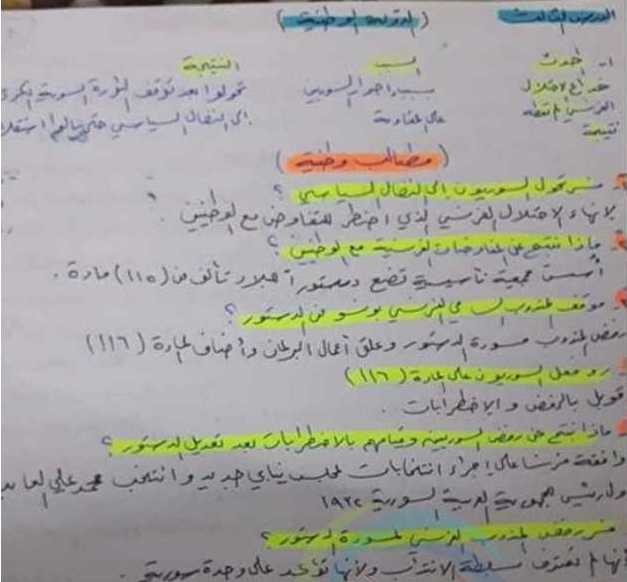 الدرس الثالث ( الدولة الوطنية )
١- الحدث السبب النتيجة
خداع الاحتلال بسبب اصرار السوريين تحولوا بعد توقف الثورة السورية الكبرى
الفرنسي على المقاومة الى النضال السياسي حتى
نتيجة
( مطالب وطنية )
فسر تحول السوريون الى النضال السياسي ؟
لانهاء الاحتلال الفرنسي الذي اضطر للتفاوض مع الوطنيين .
ماذا نتج عن المفاوضات الفرنسية مع الوطنيين ؟
أسست جمعية تأسيسية تضع دستوراً للبلاد تألف من (١١٥) مادة .
موقف المندوب السامي الفرنسي بونسو من الدستور ؟
رفض المندوب مسودة الدستور وعلق أعمال البرلمان وأضاف المادة (١١٦)
رد فعل السوريون على المادة (١١٦)
قوبل بالرفض و الاضطرابات .
ماذا نتج عن رفض السوريين وقيامهم بالاضطرابات بعد تعديل الدستور ؟
وافقة فرنسا على اجراء انتخابات مجلس نيابي جديد و انتخب محمد علي العابد
أول رئيس للجمهورية العربية السورية ١٩٣٢
فسر رفض المندوب الفرنسي لمسودة الدستور ؟
أنها لم تعترف بسلطة الانتداب ولأنها تؤكد على وحدة سورية .